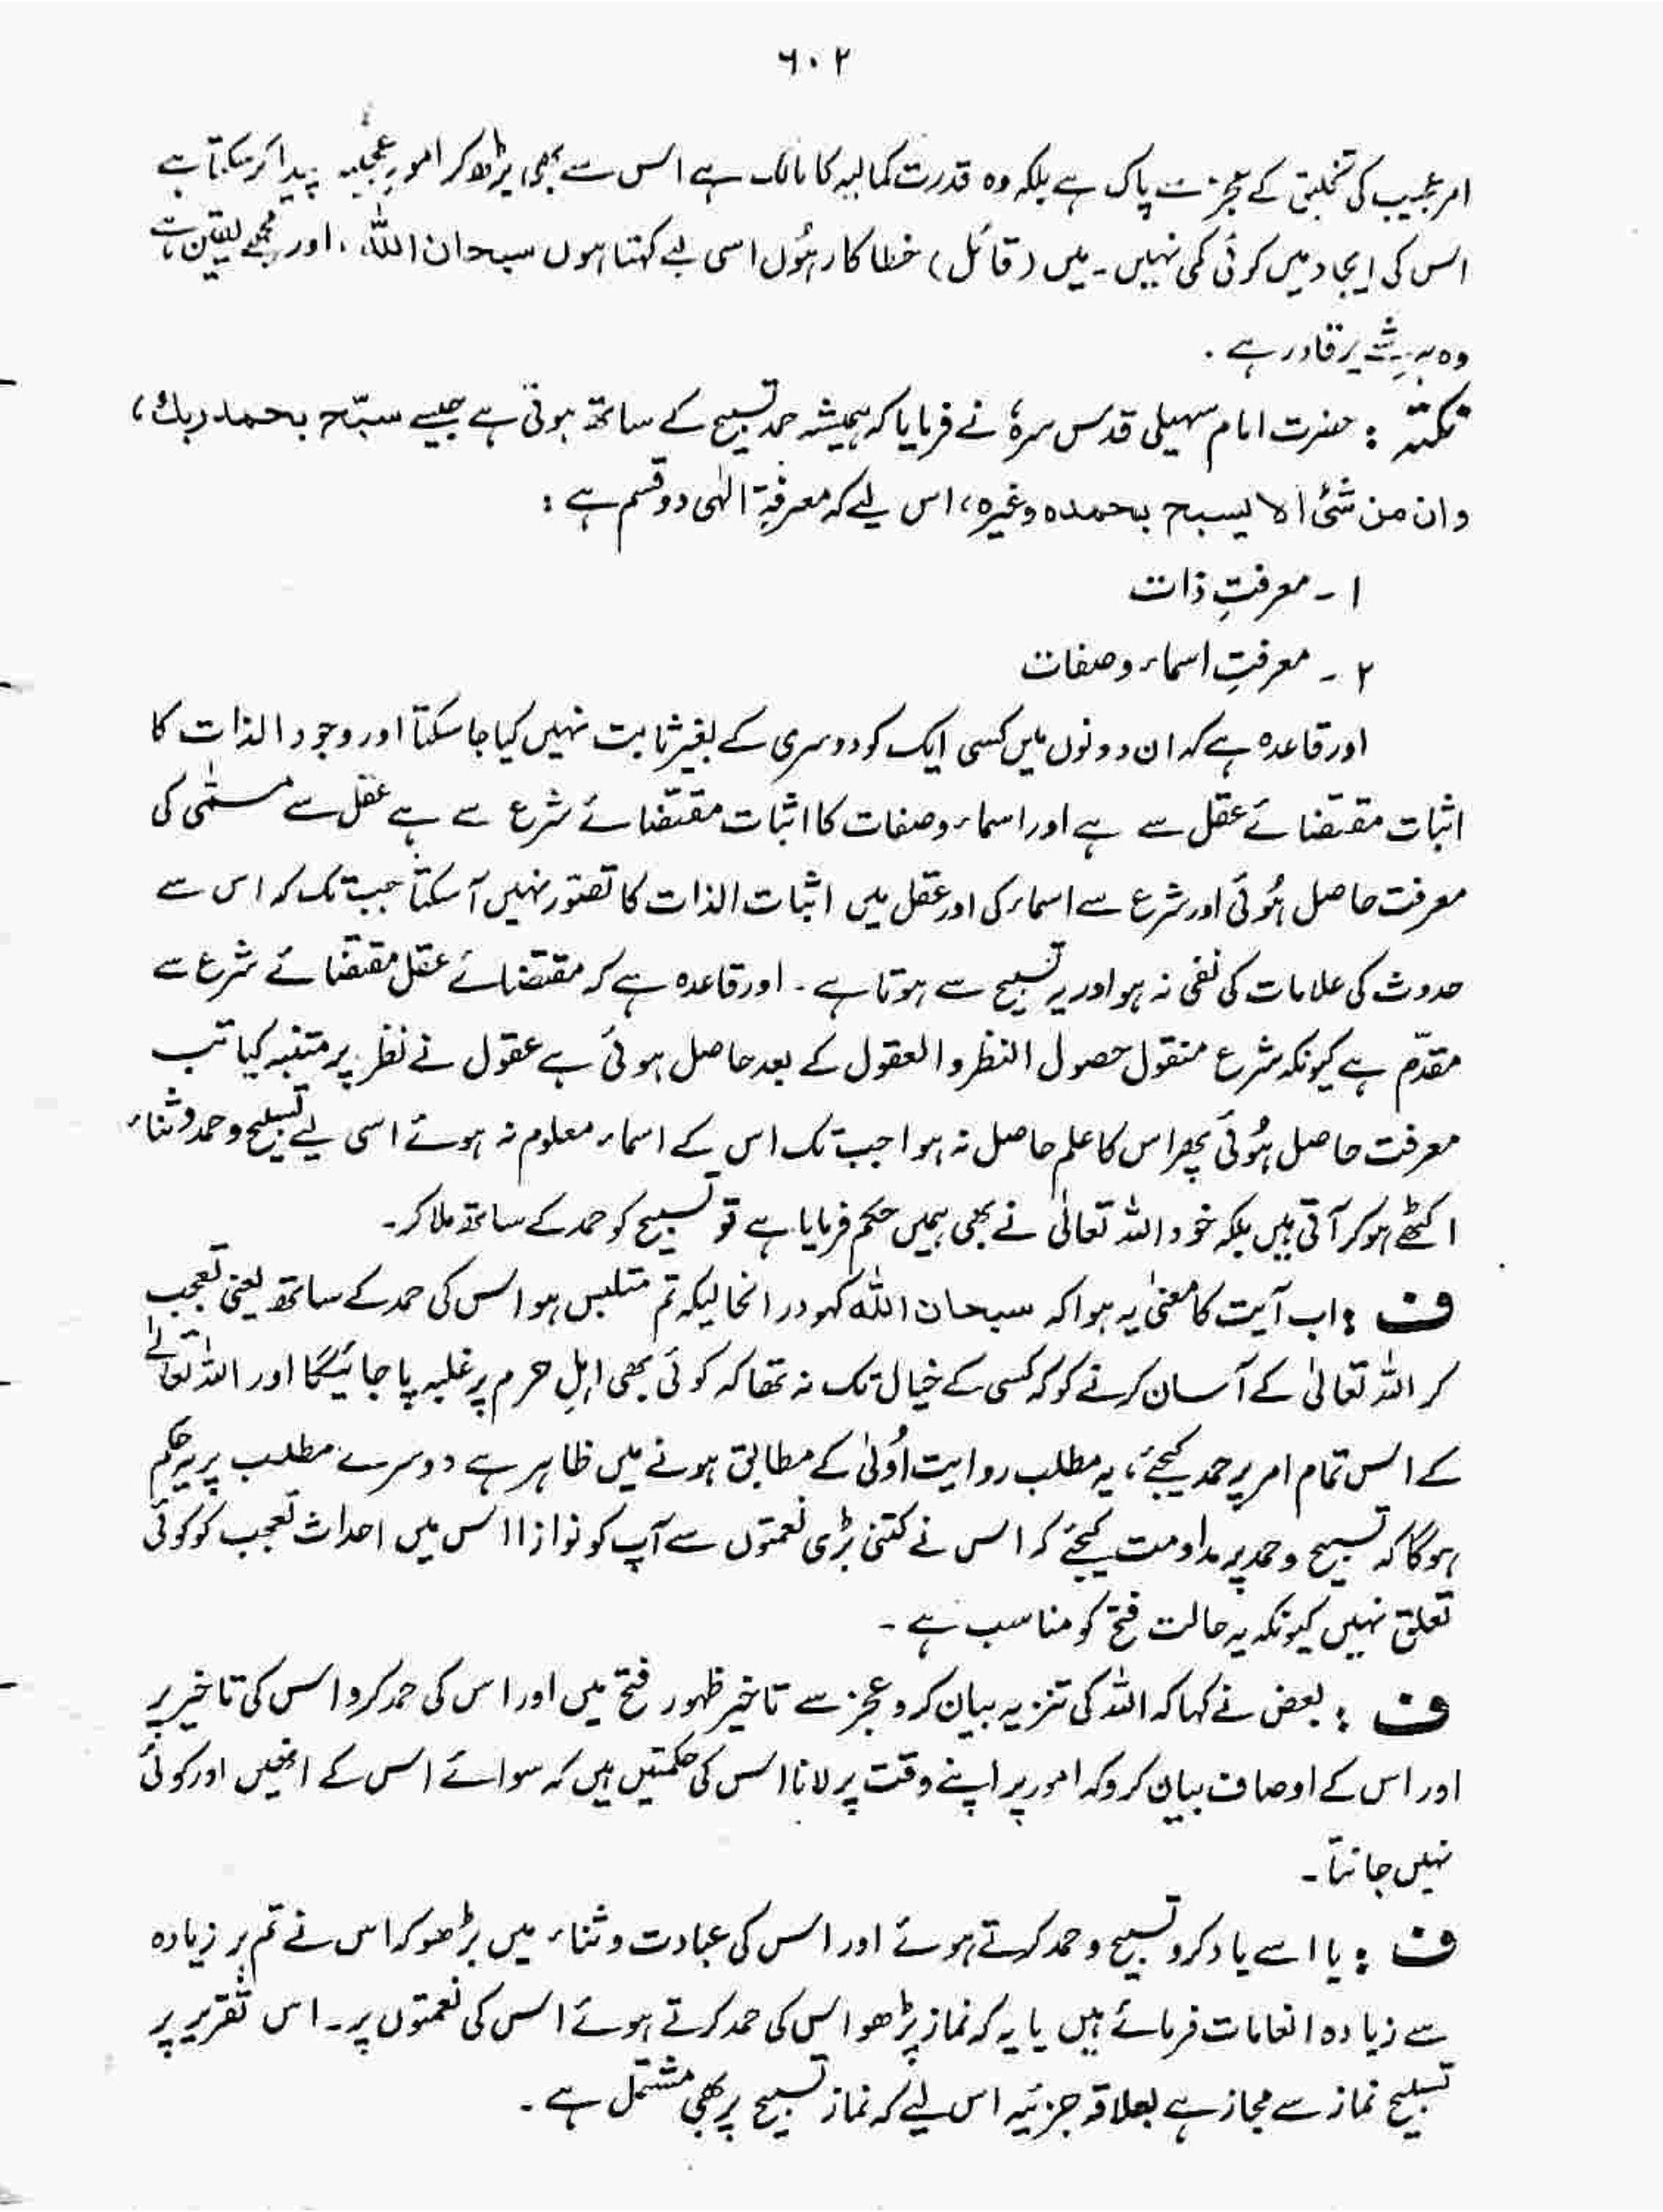 ۶۰۲
امر عجیب کی تخلیق کے عجز سے پاک ہے بلکہ وہ قدرت کمالیہ کا مالک ہے اس سے بھی بڑھ کر امورِ عجیبہ پیدا کر سکتا ہے
اس کی ایجاد میں کوئی کمی نہیں ۔ میں (قائل) خطا کار ہُوں اسی لیے کہتا ہوں سبحان اللہ ، اور مجھے یقین ہے
وہ ہر شے پر قادر ہے ۔
نکتہ : حضرت امام سہیلی قدس سرہٗ نے فرمایا کہ ہمیشہ حمد تسبیح کے ساتھ ہوتی ہے جیسے سبّح بحمد ربك ،
وان من شئ الا یسبح بحمدہ وغیرہ ، اس لیے کہ معرفۃِ الٰہی دو قسم ہے :
۱ ۔ معرفتِ ذات
۲ ۔ معرفتِ اسماء و صفات
اور قاعدہ ہے کہ ان دونوں میں کسی ایک کو دوسری کے بغیر ثابت نہیں کیا جا سکتا اور وجود الذات کا
اثبات مقتضائے عقل سے ہے اور اسماء و صفات کا اثبات مقتضائے شرع سے ہے عقل سے مسمّٰی کی
معرفت حاصل ہُوئی اور شرع سے اسماء کی اور عقل میں اثبات الذات کا تصوّر نہیں آ سکتا جب تک کہ اس سے
حدوث کی علامات کی نفی نہ ہو اور یہ تسبیح سے ہوتا ہے ۔ اور قاعدہ ہے کہ مقتضائے عقل مقتضائے شرع سے
مقدّم ہے کیونکہ شرع منقول حصول النظر و العقول کے بعد حاصل ہوئی ہے عقول نے نظر پر متنبہ کیا تب
معرفت حاصل ہُوئی پھر اس کا علم حاصل نہ ہوا جب تک اس کے اسماء معلوم نہ ہوئے اسی لیے تسبیح و حمد و ثناء
اکٹھے ہو کر آتی ہیں بلکہ خود اللہ تعالٰی نے بھی ہمیں حکم فرمایا ہے تو تسبیح کو حمد کے ساتھ ملا کر ۔
ف : اب آیت کا معنیٰ یہ ہوا کہ سبحان اللہ کہو درانحالیکہ تم متلبس ہو اس کی حمد کے ساتھ یعنی تعجب
کر اللہ تعالیٰ کے آسان کرنے کو کہ کسی کے خیال تک نہ تھا کہ کوئی بھی اہلِ حرم پر غلبہ پا جائیگا اور اللہ تعالٰے
کے اس تمام امر پر حمد کیجئے ، یہ مطلب روایت اُولیٰ کے مطابق ہونے میں ظاہر ہے دوسرے مطلب پر یہ حکم
ہوگا کہ تسبیح و حمد پر مداومت کیجئے کہ اس نے کتنی بڑی نعمتوں سے آپ کو نوازا اس میں احداث تعجب کو کوئی
تعلق نہیں کیونکہ یہ حالت فتح کو مناسب ہے ۔
ف : بعض نے کہا کہ اللہ کی تنزیہ بیان کرو عجز سے تاخیر ظہور فتح میں اور اس کی حمد کرو اس کی تاخیر پر
اور اس کے اوصاف بیان کرو کہ امور پر اپنے وقت پر لانا اس کی حکمتیں ہیں کہ سوائے اس کے انھیں اور کوئی
نہیں جانتا ۔
ف : یا اسے یاد کرو تسبیح و حمد کرتے ہوئے اور اس کی عبادت و ثناء میں بڑھو کہ اس نے تم پر زیادہ
سے زیادہ انعامات فرمائے ہیں یا یہ کہ نماز پڑھو اس کی حمد کرتے ہوئے اس کی نعمتوں پر ۔ اس تقریر پر
تسبیح نماز سے مجاز ہے بعلاقہ جزئیہ اس لیے کہ نماز تسبیح پر بھی مشتمل ہے ۔